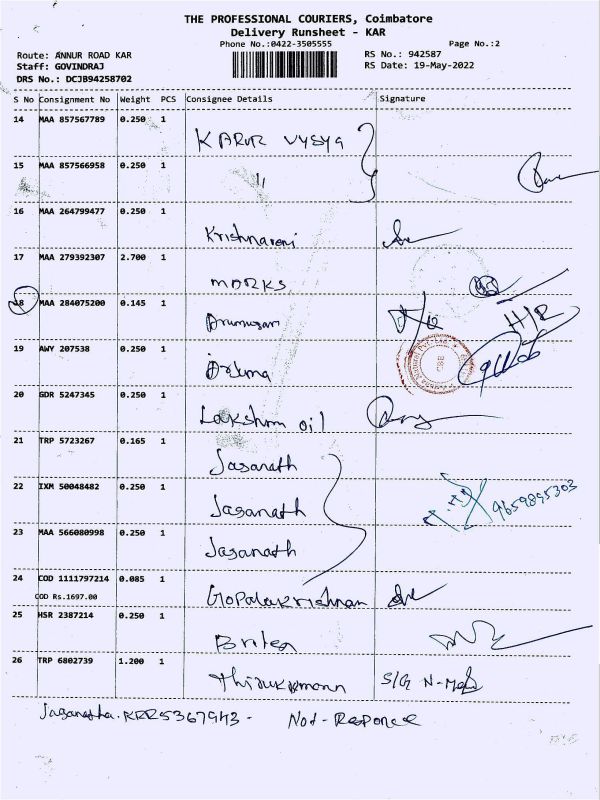 THE PROFESSIONAL COURIERS, Coimbatore
Delivery Runsheet - KAR
Phone No.:0422-3505555 Page No.:2
Route: ANNUR ROAD KAR RS No.: 942587
Staff: GOVINDRAJ RS Date: 19-May-2022
DRS No.: DCJB94258702
S No Consignment No Weight PCS Consignee Details Signature
14 MAA 857567789 0.250 1 KARUR VYSYA
15 MAA 857566958 0.250 1 "
16 MAA 264799477 0.250 1 Krishnaveni
17 MAA 279392307 2.700 1 MARKS
18 MAA 284075200 0.145 1 H/R
19 AWY 207538 0.250 1
20 GDR 5247345 0.250 1 Lakshmi oil
21 TRP 5723267 0.165 1 Jaganath
22 IXM 50048482 0.250 1 Jaganath 9659895303
23 MAA 566080998 0.250 1 Jaganath
24 COD 1111797214 0.085 1 Gopalakrishnan
COD Rs.1697.00
25 HSR 2387214 0.250 1
26 TRP 6802739 1.200 1 S/G
Jaganatha. KRR5367943 - Not - Responce